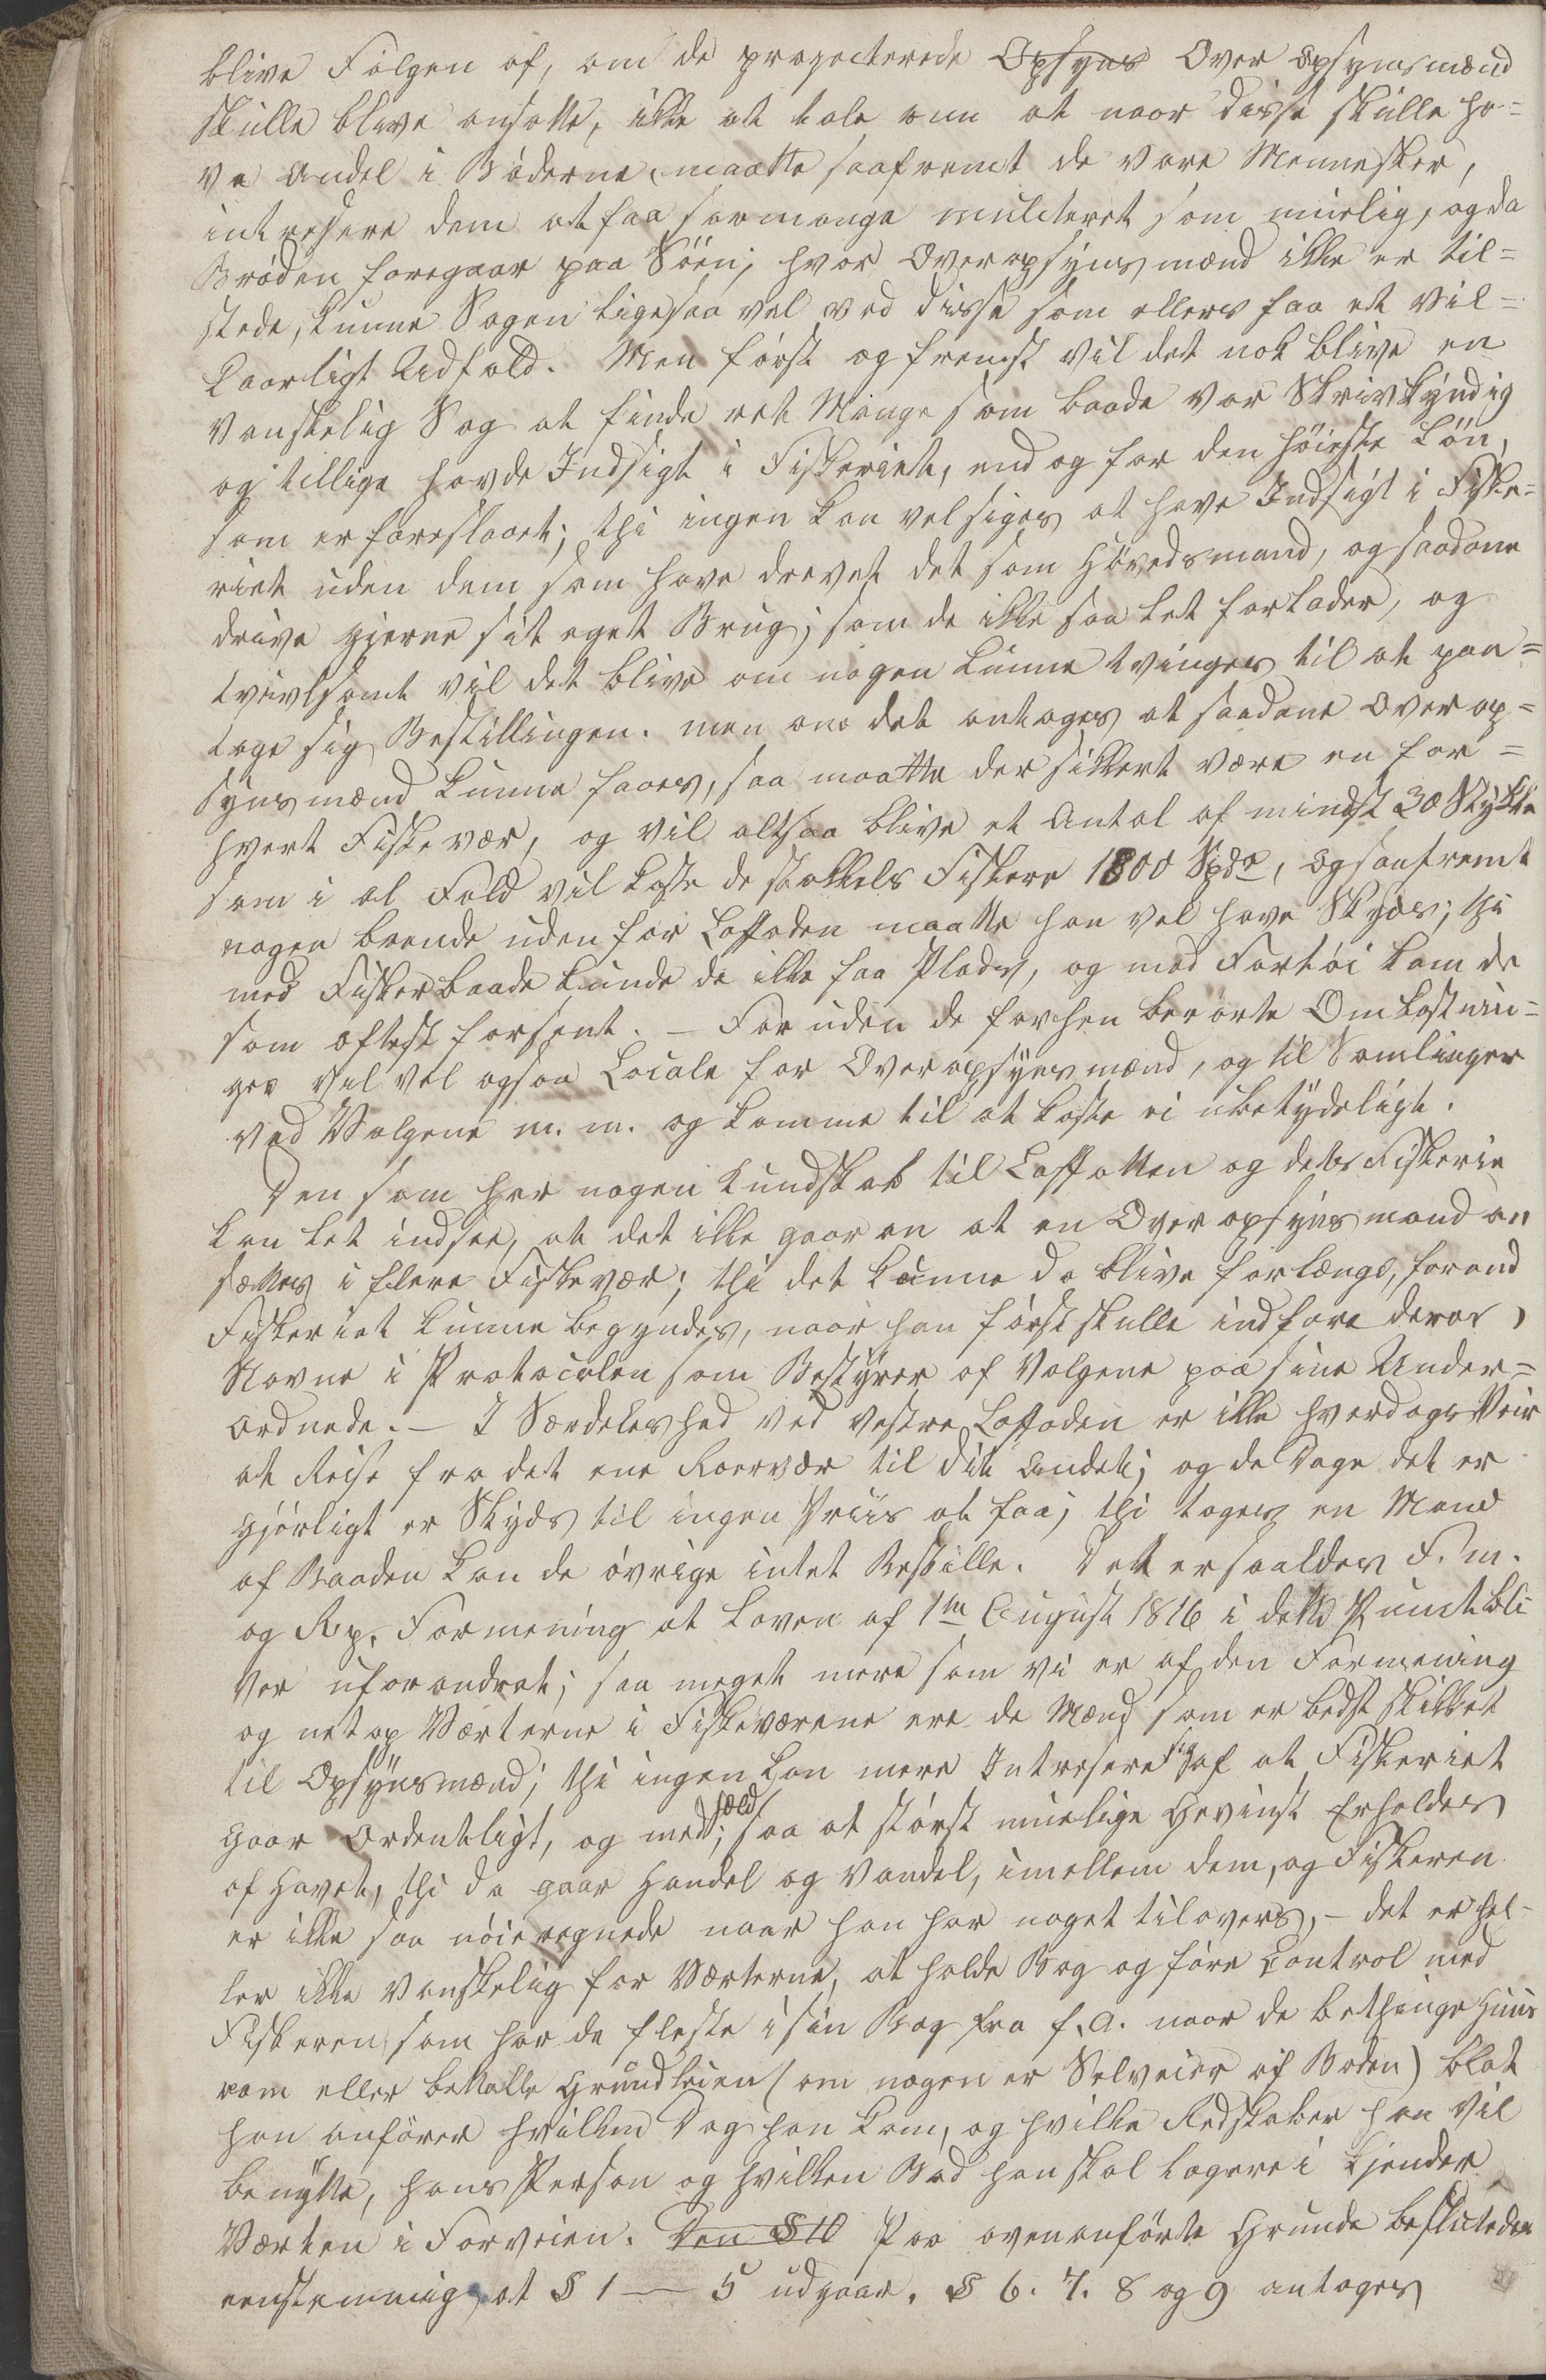 blive Følgen af, om de projecterede Opsyns Over Opsynsmænd
skulle blive ansatte, ikke at tale om at naar disse skulle ha=
ve Andel i Bøderne, maatte saafremt de vare Mennesker,
intresere dem at faa saamange mulcteret som muelig, og da
Brøden foregaar paa Søen, hvor Overopsynsmænd ikke er til=
stede, kunne Sagen ligesaa vel ved disse som ellers faa et vil=
kaarligt Udfald. Men først og fremst vil det nok blive en
vanskelig Sag at finde ret Mange som baade var Skrivkyndig
og tillige havde Indsigt i Fiskeriet, end og for den høieste Løn,
som er foreslaaet; thi ingen kan vel siges at have Indsigt i Fiske=
riet uden dem som have drevet det som Høvedsmand, og saadane
drive gjerne sit eget Brug, som de ikke saa let forlader, og
tvivlsomt vil det blive om nogen kunne tvinges til at paa=
tage sig Bestillingen. men om det antages at saadane Overop=
synsmænd kunne faaes, saa maatte der sikkert være en for=
hvert Fiskevær, og vil altsaa blive et Antal af mindst 30 Stykke
som i al Fald vil koste de stakkels Fiskere 1800 Spd, og saafremt
nogen boende uden for Loffoden maatte han vel have Skyds; thi
med Fisker baade kunde de ikke faa Plads, og med Fartøi kom de
som oftest forsent. – For uden de forhen berørte Omkostnin=
ger vil vel ogsaa Locale for Overopsynsmænd, og til Samlinger
ved Valgene m. m. og komme til at koste ei ubetydeligt.
Den som har nogen Kundskab til Loffotten og dets Fiskerie
kan let indsee, at det ikke gaar an at en Overopsynsmand an
sættes i flere Fiskevær; thi det kunne da blive forlænge, forend
Fiskeriet kunne begyndes, naar han først skulle indføre deres
Navne i Protocolen som Bestyrer af Valgene paa sine Under=
ordnede. – I Særdeleshed ved vestre Loffoden er ikke hverdags Veir
at Reise fra det ene Roervær til dit Andet; og de Dage det er
gjørligt er Skyds til ingen Priis at faa; thi tages en Mand
af Baaden kan de øvrige intet Bestille. Det er saaledes F. m.
og Rp. Formening at Loven af 1te August 1816 i dette Punct bli
ver uforandret; saa meget mere som vi er af den Formening
og netop Værterne i Fiskeværene ere de Mænd som er bedst skikket
til Opsynsmænd; thi ingen kan mere Intresere sig af at Fiskeriet
gaar Ordentligt, og med; sæld saa at størst muelige Gevinst Erholdes
af Havet, thi da gaar Handel og Vandel, imellem dem, og Fiskeren
er ikke saa nøieregnede naar han har noget tilovers, – det er hel=
ler ikke vanskelig for Værterne, at holde Bog og føre Control med
Fiskeren som har de fleste i sin Bog fra f. A. naar de bethinge Huus
rom eller betalte Grundleien (om nogen er Selveier af Boden) blot
han anfører hvilken Dag han kom, og hvilke Redskaber han vil
benytte, hans Person og hvilken Bod han skal logere i kjender
Værten i Forveien. Den § 10 Paa ovenanførte Grunde besluttedes
eenstemmig, at § 1 — 5 udgaar. § 6. 7. 8 og 9 antages